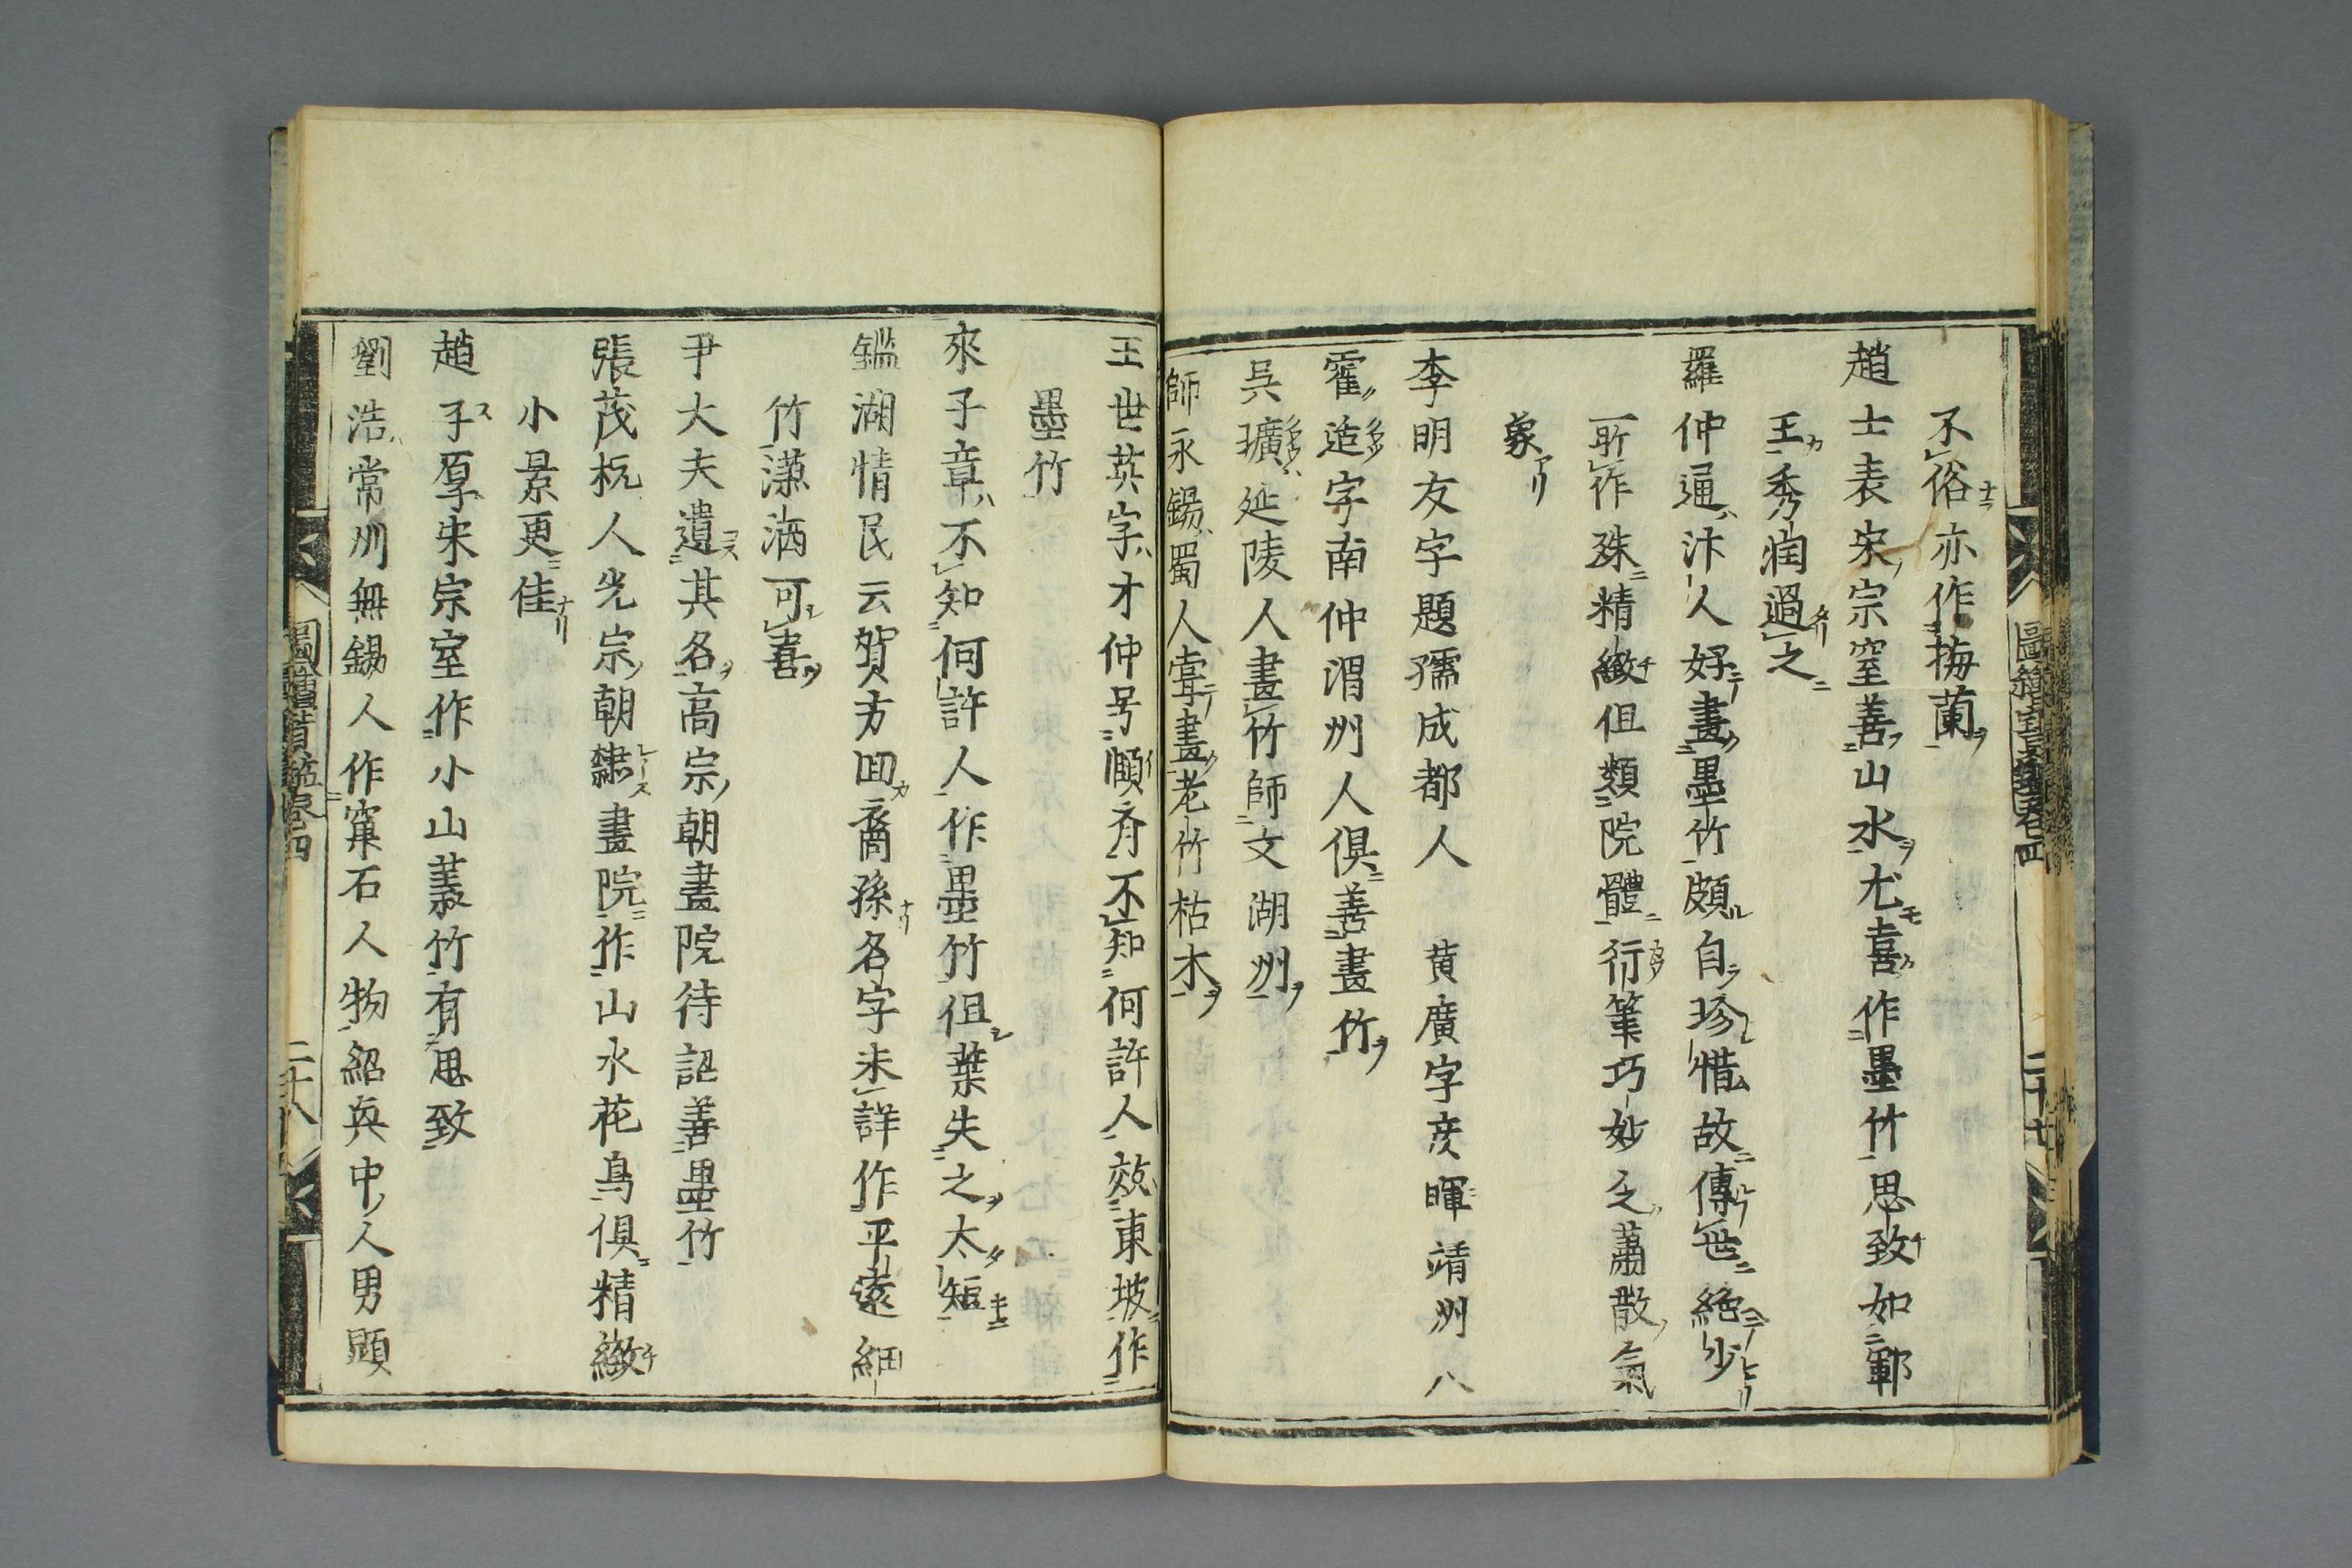 不俗亦作梅蘭
趙士表宋宗室善山水尤喜作墨竹思致如鄆
王秀润過之
羅仲通汴人好畫墨竹頗自珍惜故傳世絶少
所作殊精緻但類院體行筆巧妙乏蕭散氣
象
李明友字題孺成都人　黄廣字彦暉靖州人
霍造字南仲渭州人俱善畫竹
吳璜延陵人畫竹師文湖州
師永錫蜀人嘗畫老竹枯木
王世英字才仲号順齐不知何許人效東坡作
墨竹
來子章不知何許人作墨竹但葉失之太短
鑑湖情民云賀方回裔孫名字未詳作平遠細
竹濂洒可喜
尹大夫遺其名高宗朝畫院待詔善墨竹
張茂杭人光宗朝隸畫院作山水花鳥俱精緻
小景更佳
趙子厚宋宗室作小山叢竹有思致
劉浩常州無錫人作窠石人物紹兵中人男顕
圖繪寶鑑卷四
二十七
圖繪寶鑑卷四
二十八